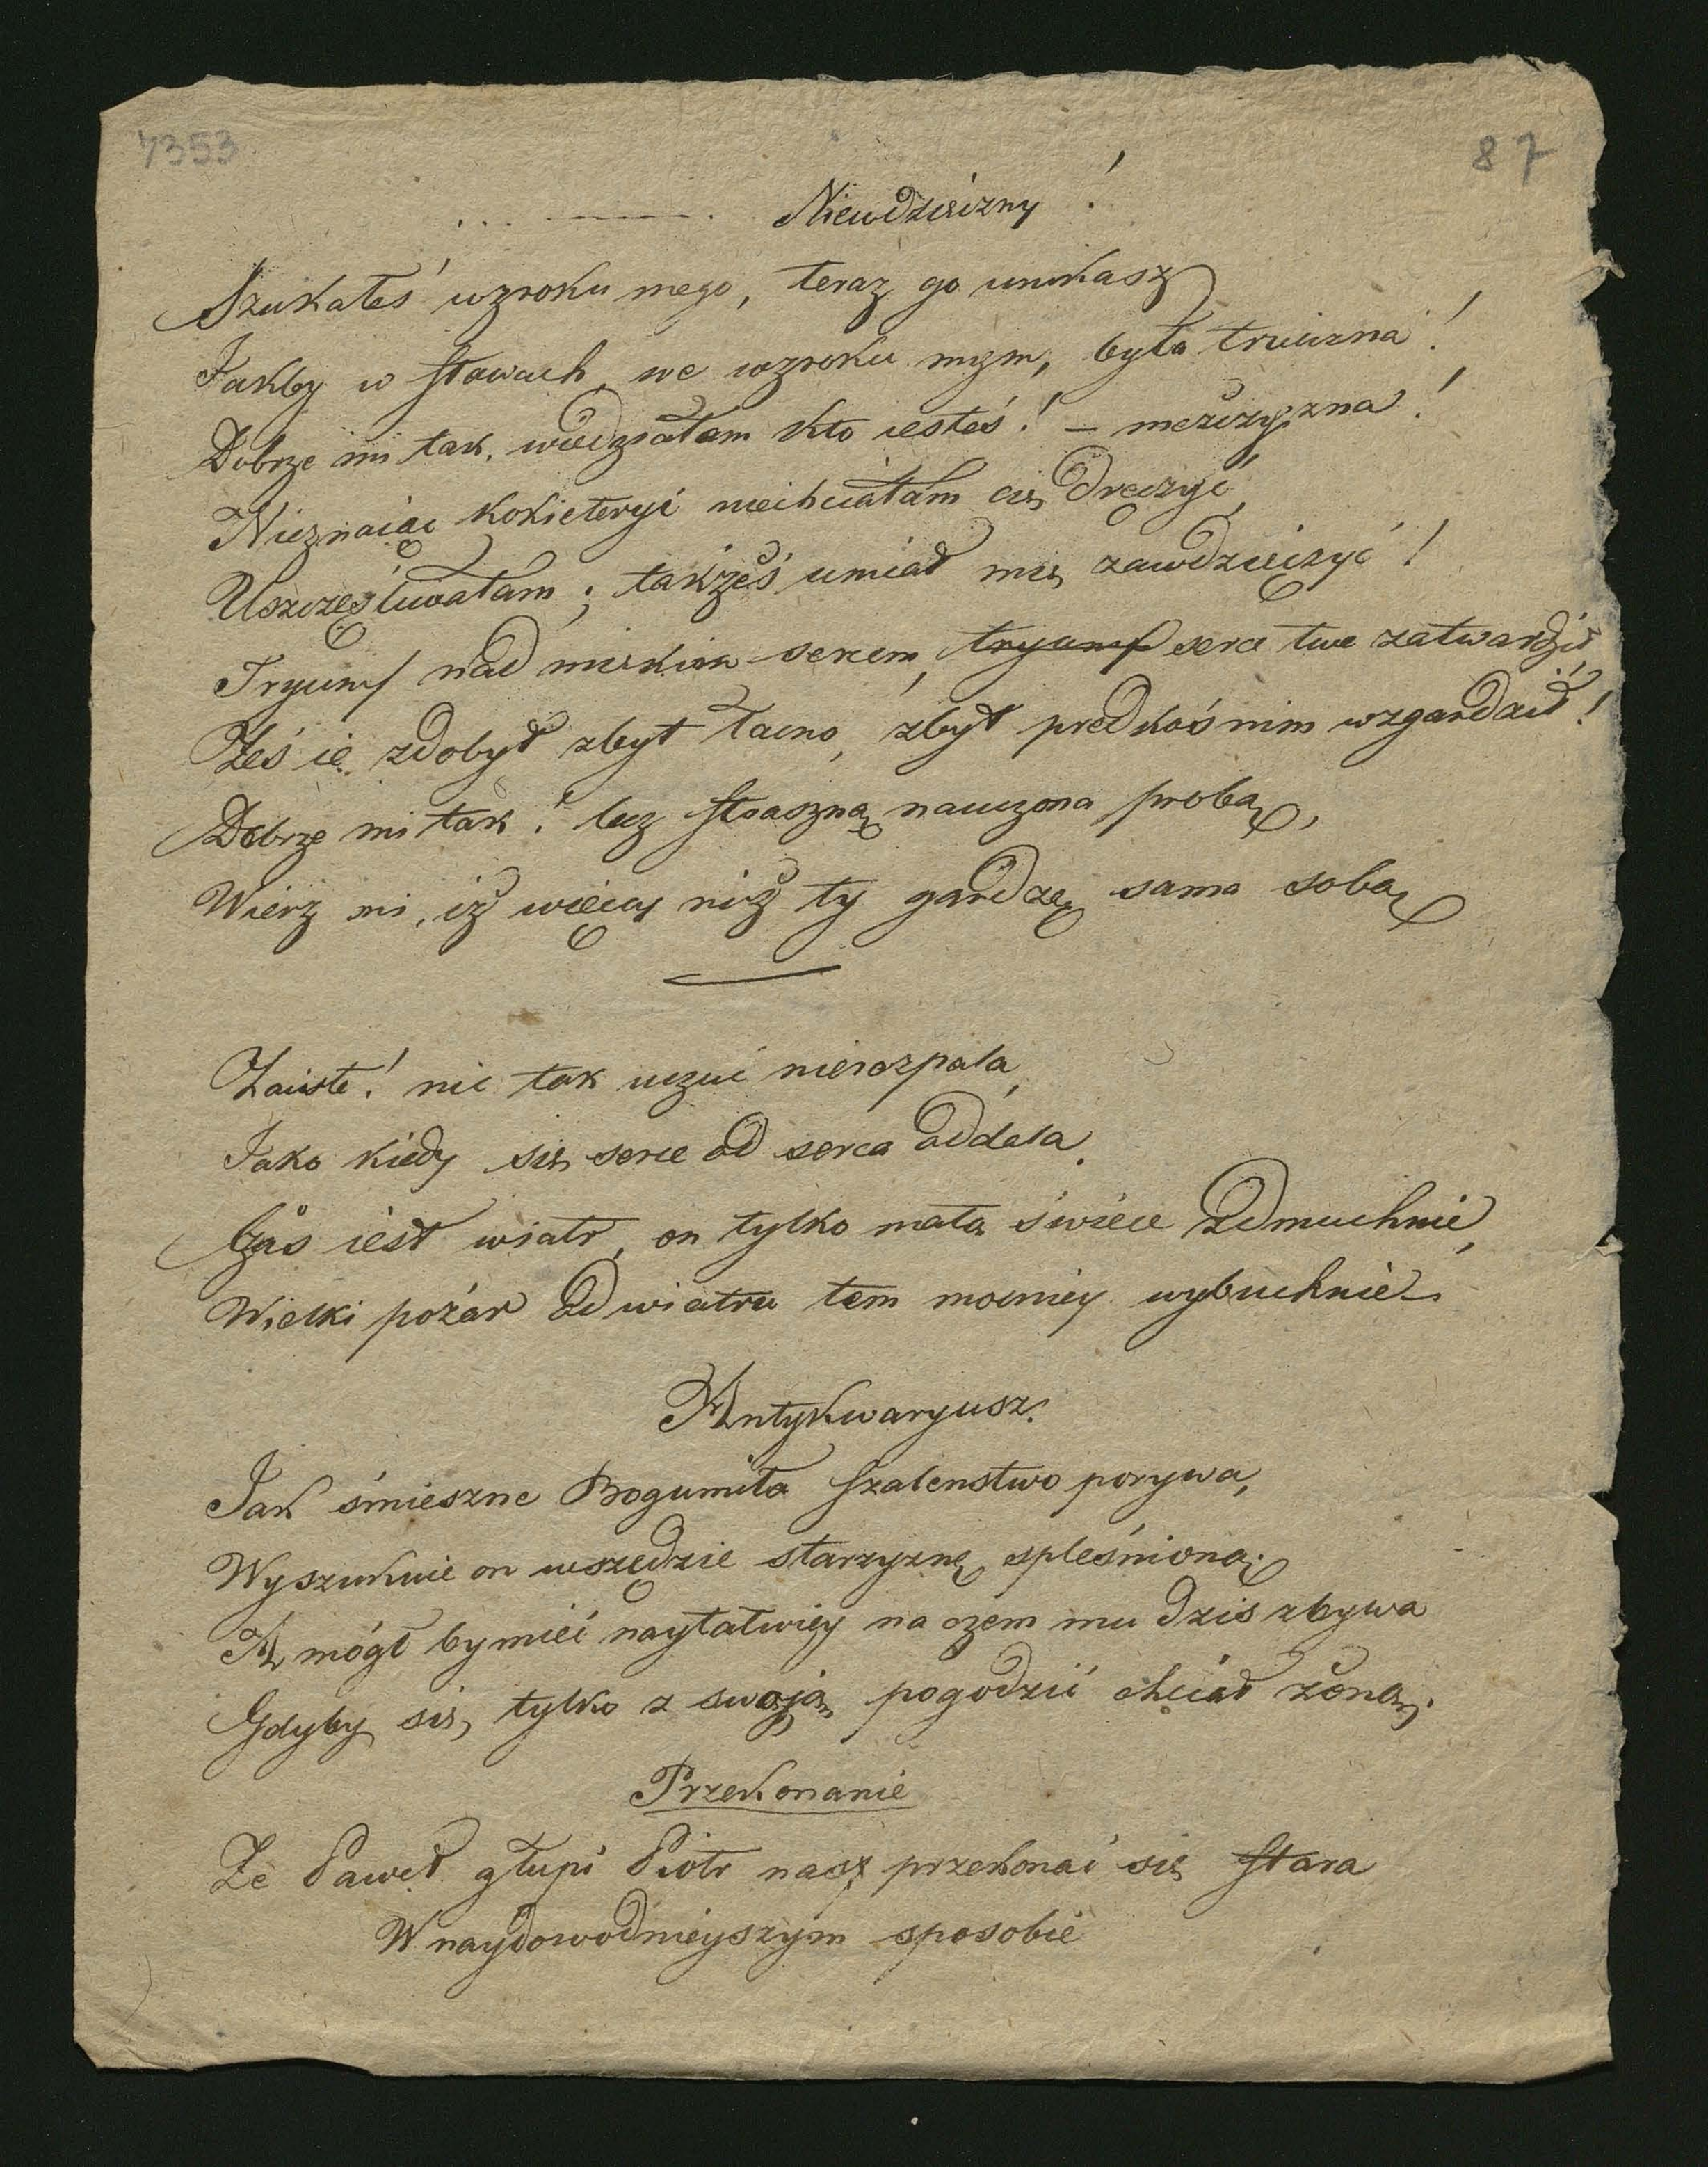 7353
87
... ———. Niewdzięczny!
Szukałeś wzroku mego, teraz go unikasz
Jakby w słowach, we wzroku mym, była trucizna!
Dobrze mi tak, wiedziałam kto iesteś! – meżczyzna!
Nieznaiąc kokieteryi niechciałam cię dręczyć,
Uszczęśliwiałam; takżeś umiał mię zawdzięczyć!
Tryumf nad miękim sercem, tryumf serce twe zatwardził,
Żeś ie zdobył zbyt łacno, zbyt predkoś nim wzgardził!
Dobrze mi tak! lecz straszną nauczona probą,
Wierz mi, iż więcey niż ty gardzę sama sobą
Zaiste! nic tak uczuć nierozpala,
Jako kiedy się serce od serca oddala.
Czas iest wiatr, on tylko małą świece zdmuchnie,
Wielki pożar od wiatru tem mocniey wybuchnie
Antykwaryusz.
Jak śmieszne Bogumiła szalenstwo porywa,
Wyszukuie on wszędzie starzyznę spleśnioną;
A mógł by mieć nayłatwiey na czem mu dziś zbywa
Gdyby się tylko z swoją pogodzić chciał żoną.
Przekonanie
Że Paweł głupi Piotr nasz przekonać się stara
W naydowodnieyszym sposobie